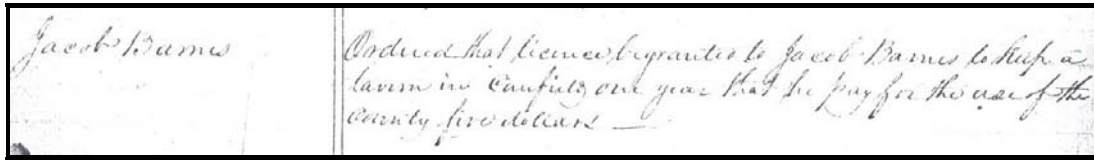 Jacob Barnes
Ordered that licence be granted to Jacob Barnes to keep a
tavern in Canfield one year that he pay for the use of the
County five dollars —